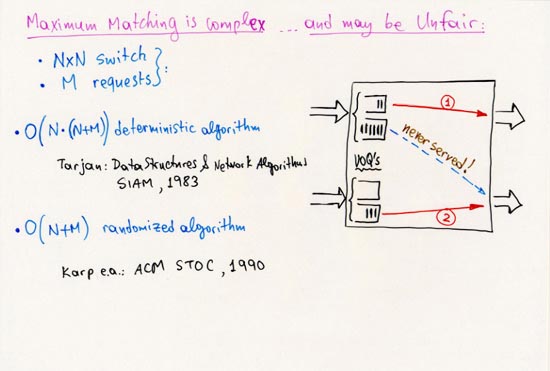 Maximum Matching is complex ... and may be Unfair:
• N×N switch
• M requests } :
• O(N·(N+M)) deterministic algorithm
Tarjan: Data Structures & Network Algorithms
SIAM, 1983
• O(N+M) randomized algorithm
Karp e.a.: ACM STOC, 1990
1
never served!
VOQ's
2